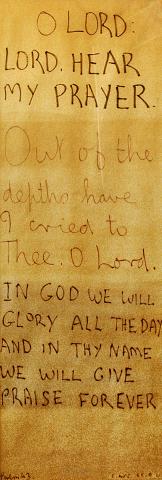 O LORD:
LORD. HEAR
MY PRAYER.
Out of the
depths have
I cried to
Thee. O Lord.
IN GOD WE WILL
GLORY ALL THE DAY
AND IN THY NAME
WE WILL GIVE
PRAISE FOREVER